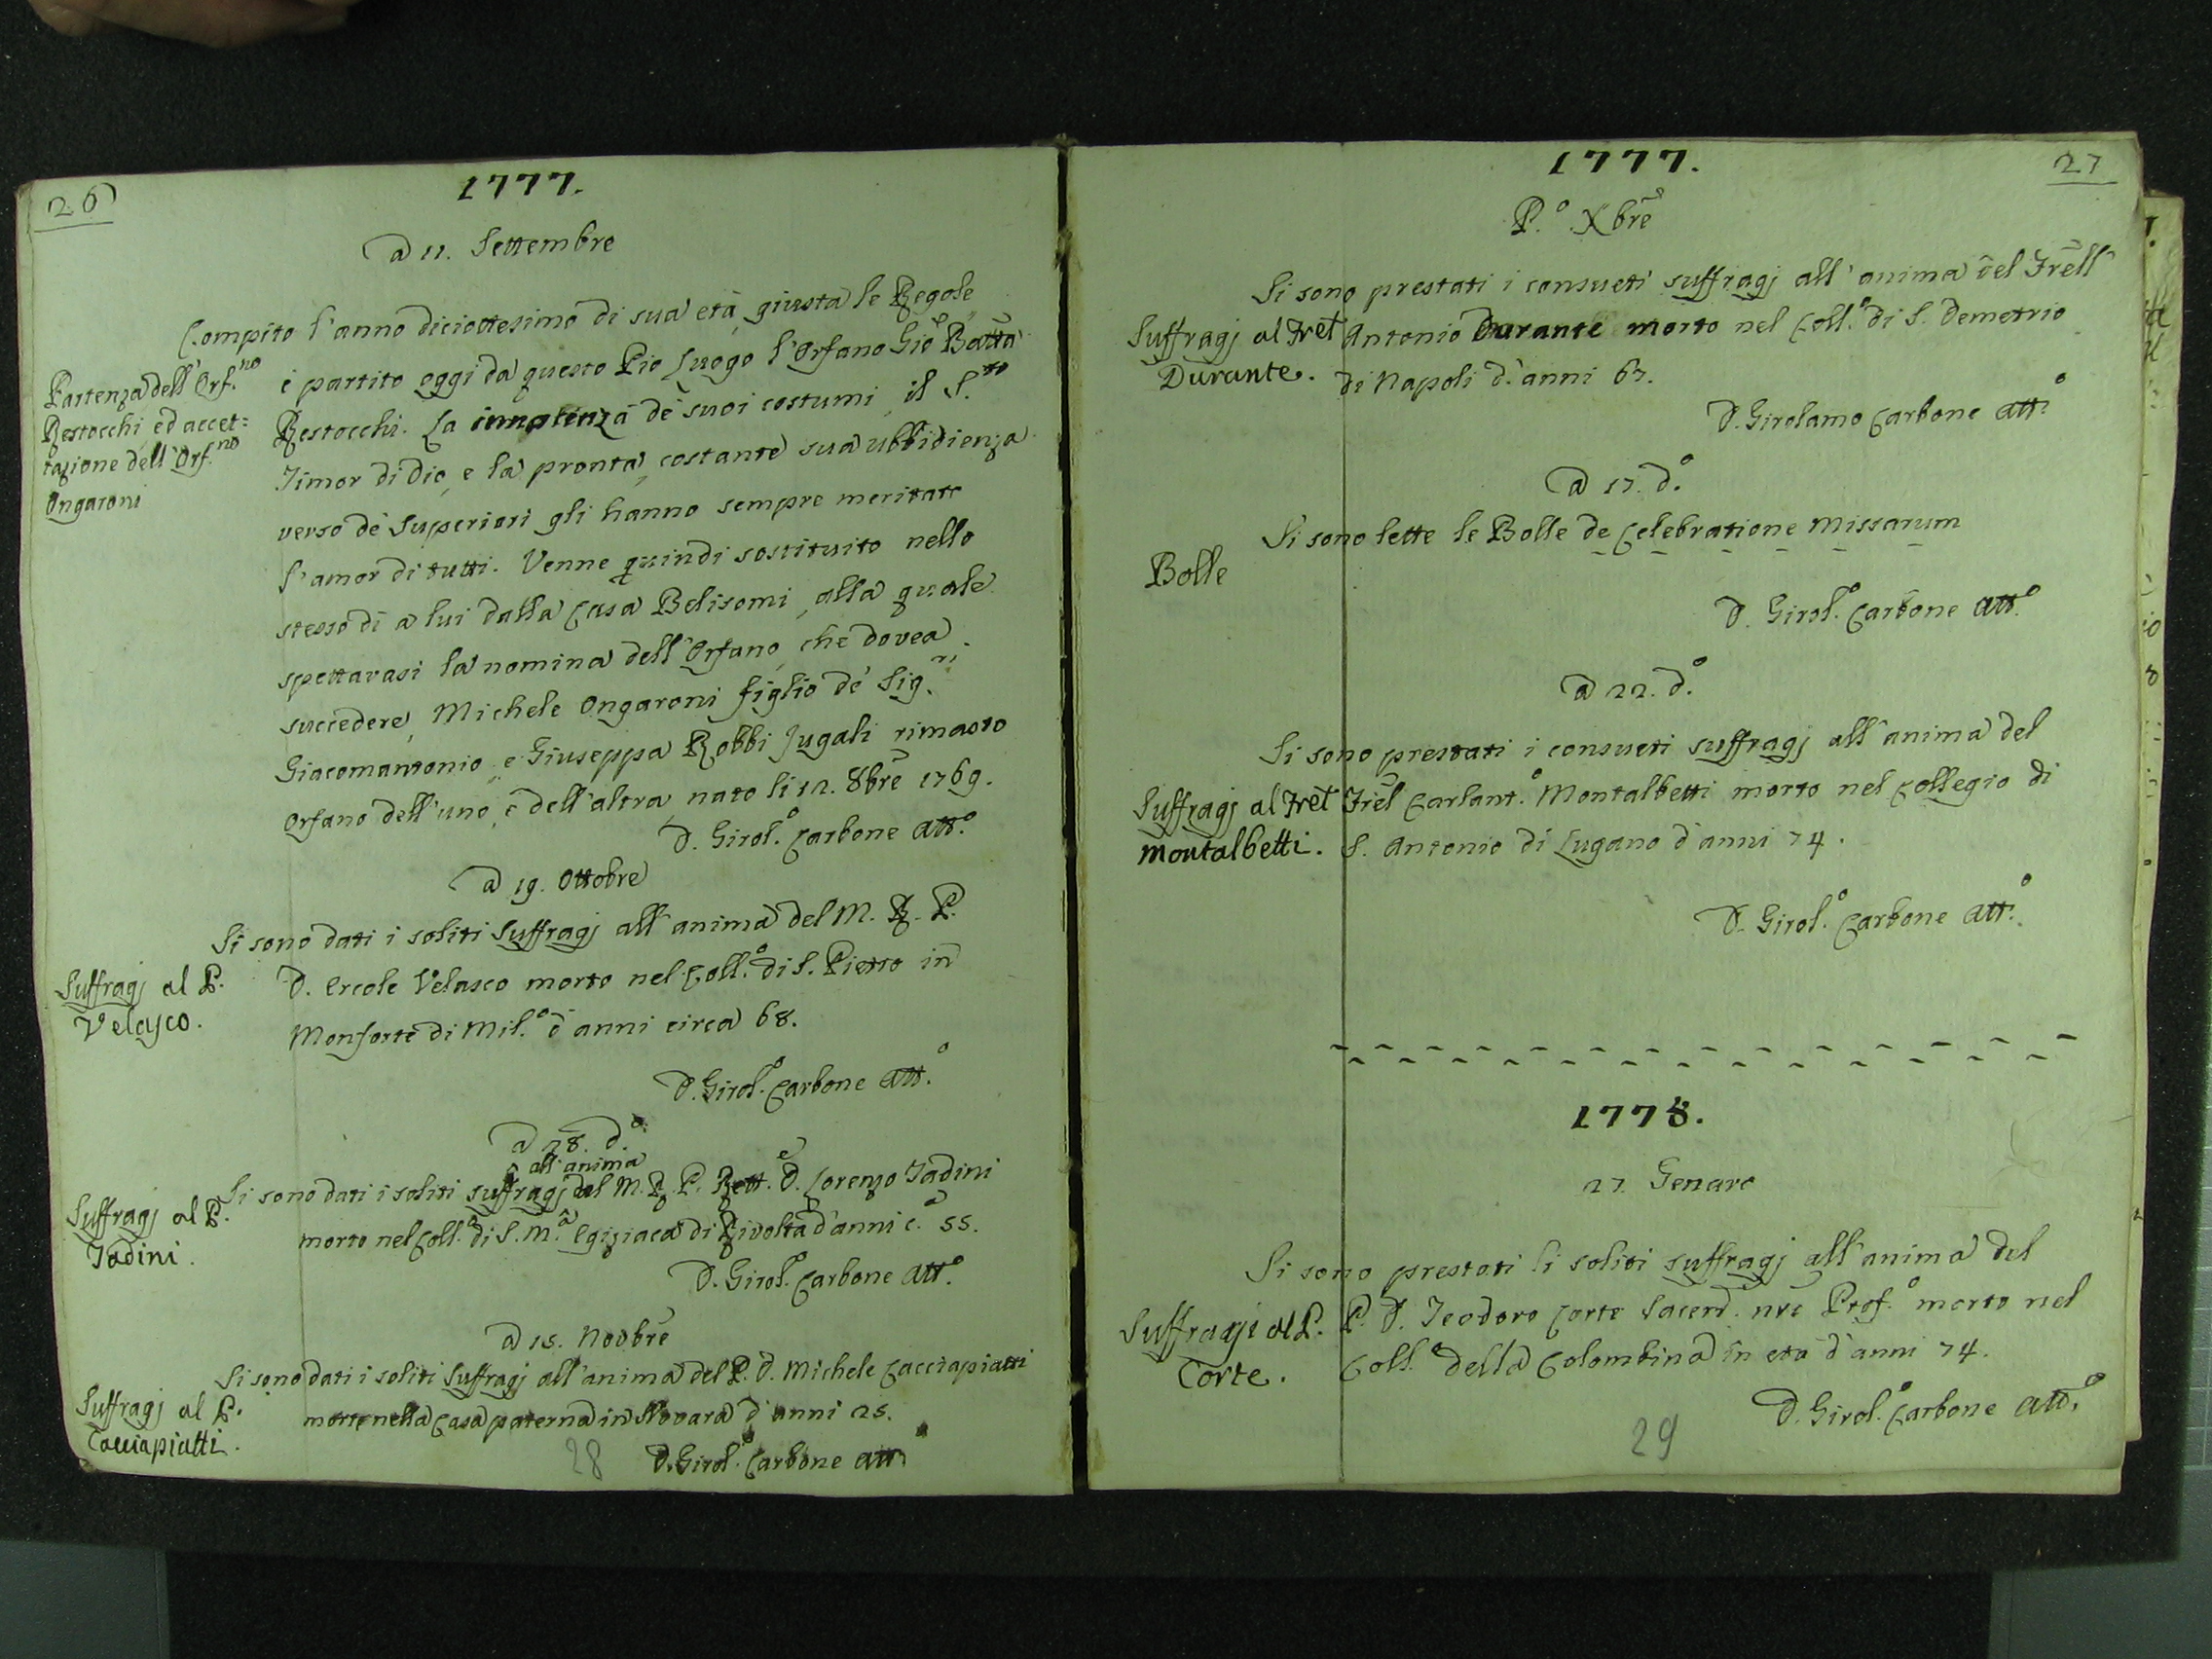 26
1777.
a 11. Settembre
Compito l'anno diciottesimo di sua età, giusta le Regole,
Partenza dell'Orf.no
Restocchi ed accet=
tazione dell'Orf.no
Ongaroni
è partito oggi da questo Pio Luogo l'Orfano Gio Batta
Restocchi. La innocenza de' suoi costumi, il S.to
Timor di Dio, e la pronta, costante sua ubbidienza
verso de' Superiori gli hanno sempre meritato
l'amor di tutti. Venne quindi sostituito nello
stesso dì a lui dalla Casa Belisomi, alla quale
spettavasi la nomina dell'Orfano, che dovea
succedere, Michele Ongaroni figlio de' Sig.ri
Giacomantonio, e Giuseppa Robbi Jugali rimasto
orfano dell'uno, e dell'altra, nato li 12. 8bre 1769.
D. Girol.o Carbone Att.o
a 19. Ottobre
Si sono dati i soliti Suffragj all'anima del M. R. P.
Suffragj al P.
Velasco.
D. Ercole Velasco morto nel Coll.o di S. Pietro in
Monforte di Mil.o d'anni circa 68.
D. Girol.o Carbone Att.o
a 28. d.o
all'anima
Si sono dati i soliti suffragj del M. R. P. Rett.e D. Lorenzo Tadini
Suffragj al P.
Tadini.
morto nel Coll.o di S. M.a Egiziaca di Rivolta d'anni c.a 55.
D. Girol.o Carbone Att.o
a 15. Novbre
Si sono dati i soliti Suffragj all'anima del P. D. Michele Cacciapiatti
Suffragj al P.
Cacciapiatti.
morto nella Casa paterna in Novara d'anni 25.
28
D. Girol.o Carbone Att.o
1777.
27
P.o Xbre
Si sono prestati i consueti suffragj all'anima del Frell
Suffragj al Frel
Durante.
Antonio Durante morto nel Coll.o di S. Demetrio
di Napoli d'anni 67.
D. Girolamo Carbone Att.o
a 17. d.o
Si sono lette le Bolle de Celebratione Missarum
Bolle
D. Girol.o Carbone Att.o
a 22. d.o
Si sono prestati i consueti suffragj all'anima del
Suffragj al Frel
Montalbetti.
Frel Carlant.o Montalbetti morto nel Collegio di
S. Antonio di Lugano d'anni 74.
D. Girol.o Carbone Att.o
1778.
27. Genaro
Si sono prestati li soliti suffragj all'anima del
Suffragi al P.
Corte.
P. D. Teodoro Corte Sacerd. nro Prof.o morto nel
Coll.o della Colombina in età d'anni 74.
D. Girol.o Carbone Att.o
29